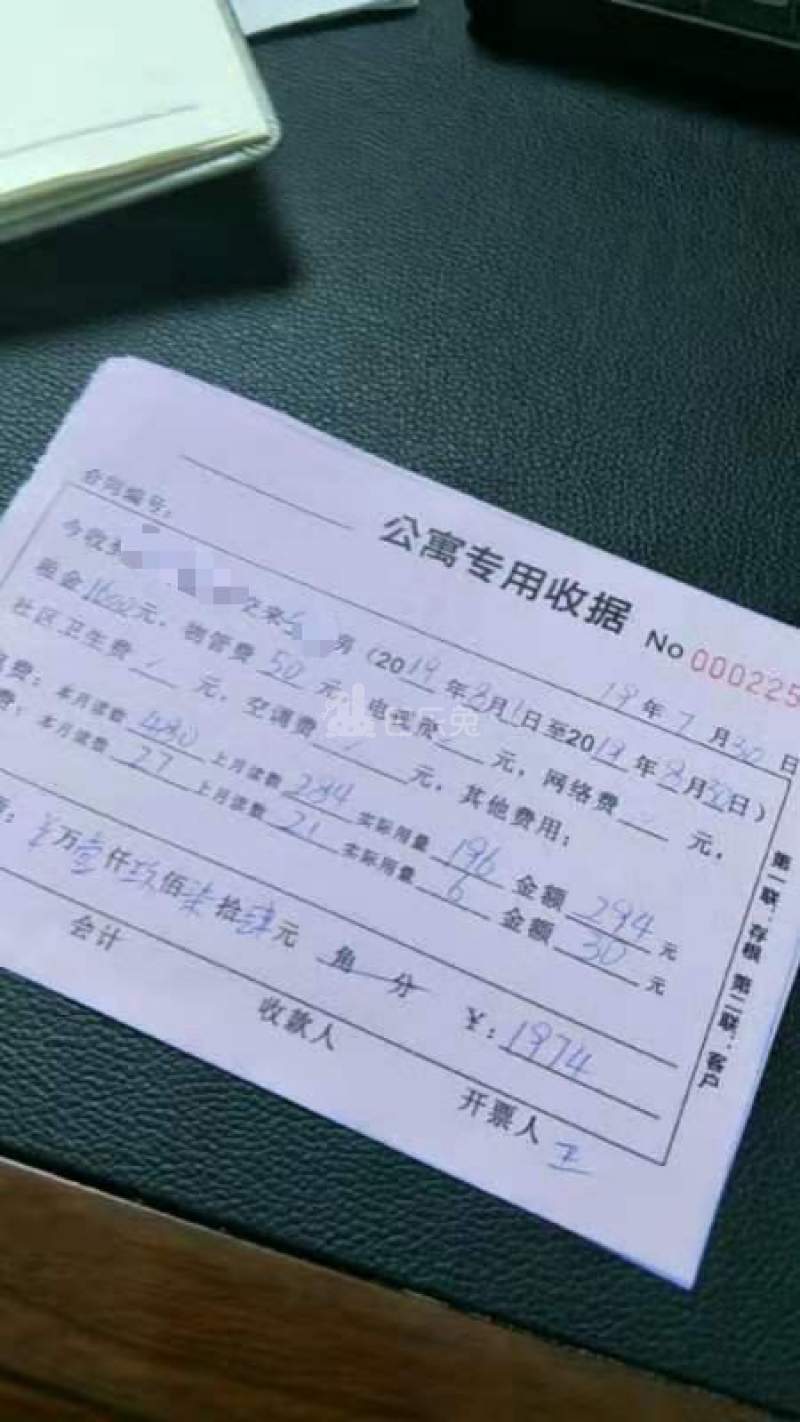 合同编号:
公寓专用收据 No 000225
19年7月30日
今收到 交来 男(2019年8月1日至2019年8月30日)
租金1600元,物管费50元,电视费 元,网络费 元,
社区卫生费 / 元,空调费 / 元,其他费用:
电费:本月读数480上月读数284实际用量196金额294元
费:本月读数27上月读数21实际用量6金额30元
万壹仟玖佰柒拾肆元 角 分 ¥:1974
会计 收款人 开票人 王
第一联:存根 第二联:客户
七乐兔